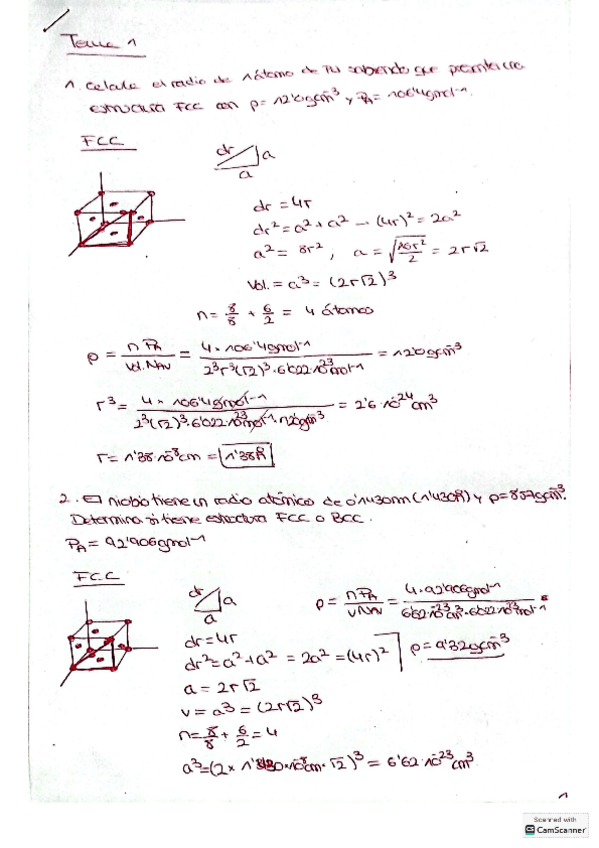 Tema 1
1. Calcula el radio de 1 átomo de sabiendo que presenta una
estructura FCC con ρ=12'0gcm⁻³ y PA=106'4gmol⁻¹.
FCC
dr a
a
dr = 4r
dr² = a² + a² → (4r)² = 2a²
a² = 8r² ; a = √(16r²/2) = 2r√2
Vol. = a³ = (2r√2)³
n = 8/8 + 6/2 = 4 átomos
ρ = n PA / Vol. NAV = 4 · 106'4gmol⁻¹ / 2³r³(√2)³ · 6'022·10²³mol⁻¹ = 12'0gcm⁻³
r³ = 4 · 106'4gmol⁻¹ / 2³(√2)³ · 6'022·10²³mol⁻¹ · 12'0gcm⁻³ = 2'6·10⁻²⁴cm³
r = 1'38·10⁻⁸cm = 1'38Å
2. El niobio tiene un radio atómico de 0'1430nm (1'430Å) y ρ=8'57gcm⁻³.
Determina si tiene estructura FCC o BCC.
PA = 92'906gmol⁻¹
FCC
dr a
a
ρ = n PA / V NAV = 4 · 92'906gmol⁻¹ / 6'62·10⁻²³cm³ · 6'022·10²³mol⁻¹ =
dr = 4r
dr² = a² + a² = 2a² = (4r)²
ρ = 9'32gcm⁻³
a = 2r√2
v = a³ = (2r√2)³
n = 8/8 + 6/2 = 4
a³ = (2 × 1'430·10⁻⁸cm · √2)³ = 6'62·10⁻²³cm³
1
Scanned with
CS CamScanner